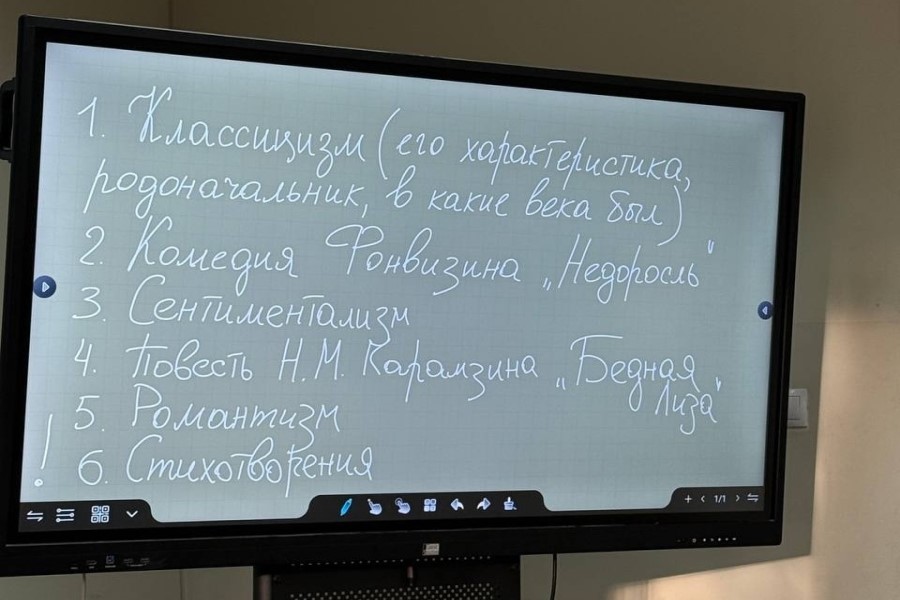 1. Классицизм (его характеристика,
родоначальник, в какие века был)
2. Комедия Фонвизина „Недоросль"
3. Сентиментализм
4. Повесть Н.М. Карамзина „Бедная
Лиза"
5. Романтизм
! 6. Стихотворения
1/1